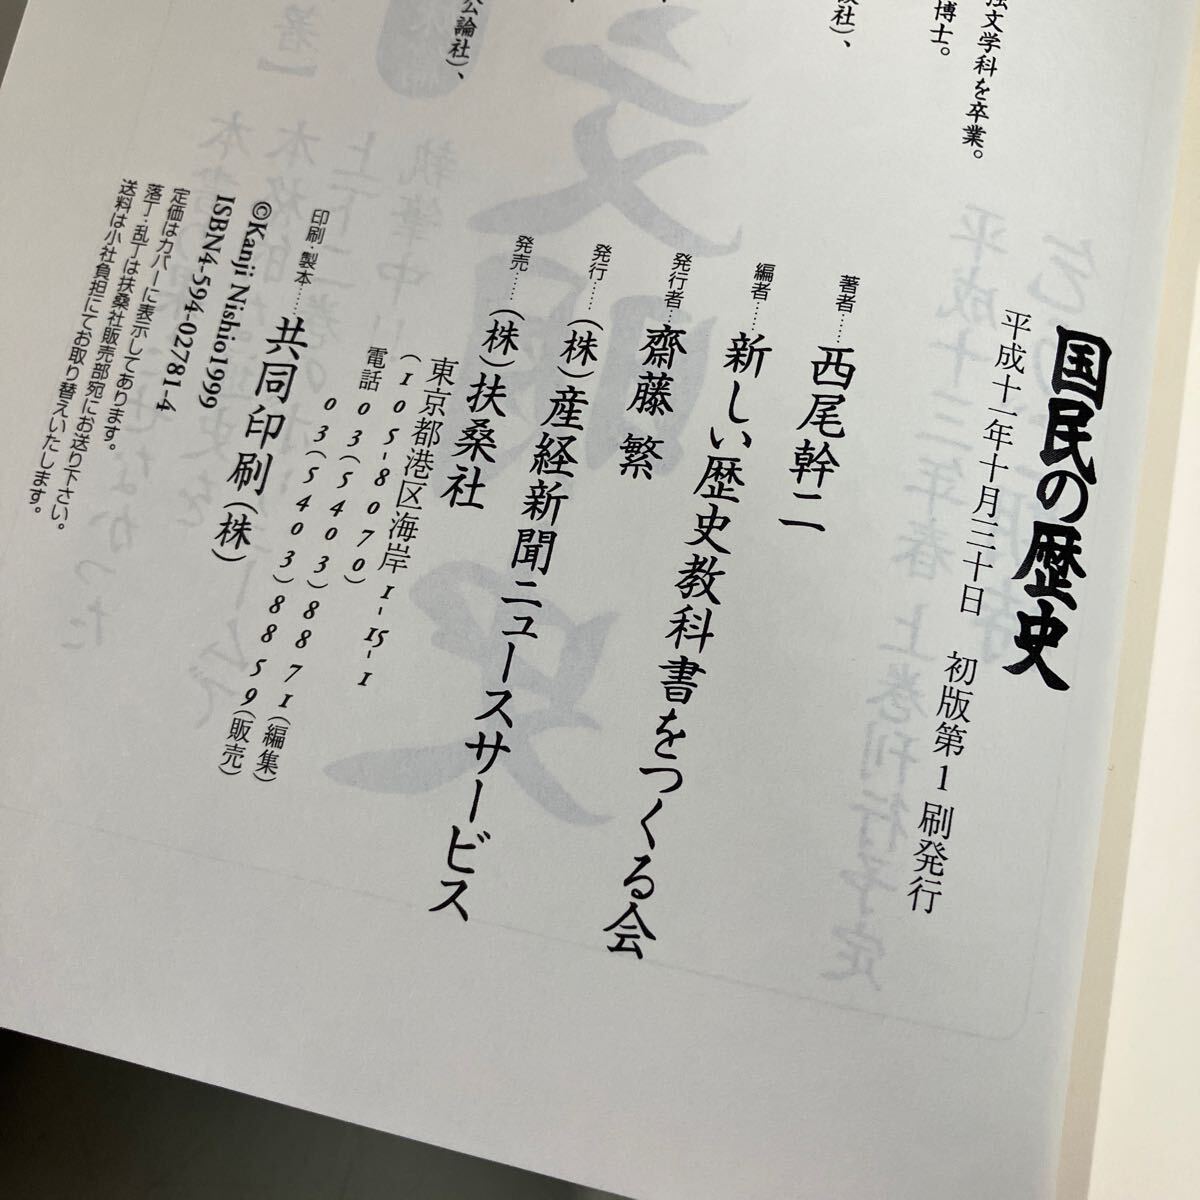 独文学科を卒業。
博士。
社)、
公論社)、
国民の歴史
平成十一年十月三十日　初版第1刷発行
著者……西尾幹二
編者……新しい歴史教科書をつくる会
発行者……齋藤 繁
発行……(株)産経新聞ニュースサービス
発売……(株)扶桑社
東京都港区海岸1-15-1
(105-8070)
電話03(5403)8871(編集)
03(5403)8859(販売)
印刷・製本……共同印刷(株)
©Kanji Nishio1999
ISBN4-594-02781-4
定価はカバーに表示してあります。
落丁・乱丁は扶桑社販売部宛にお送り下さい。
送料は小社負担にてお取り替えいたします。